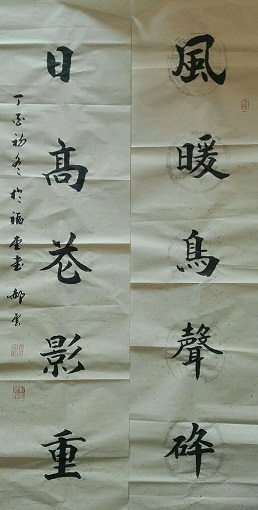 風暖鳥聲碎
日高花影重
丁酉初冬於福書